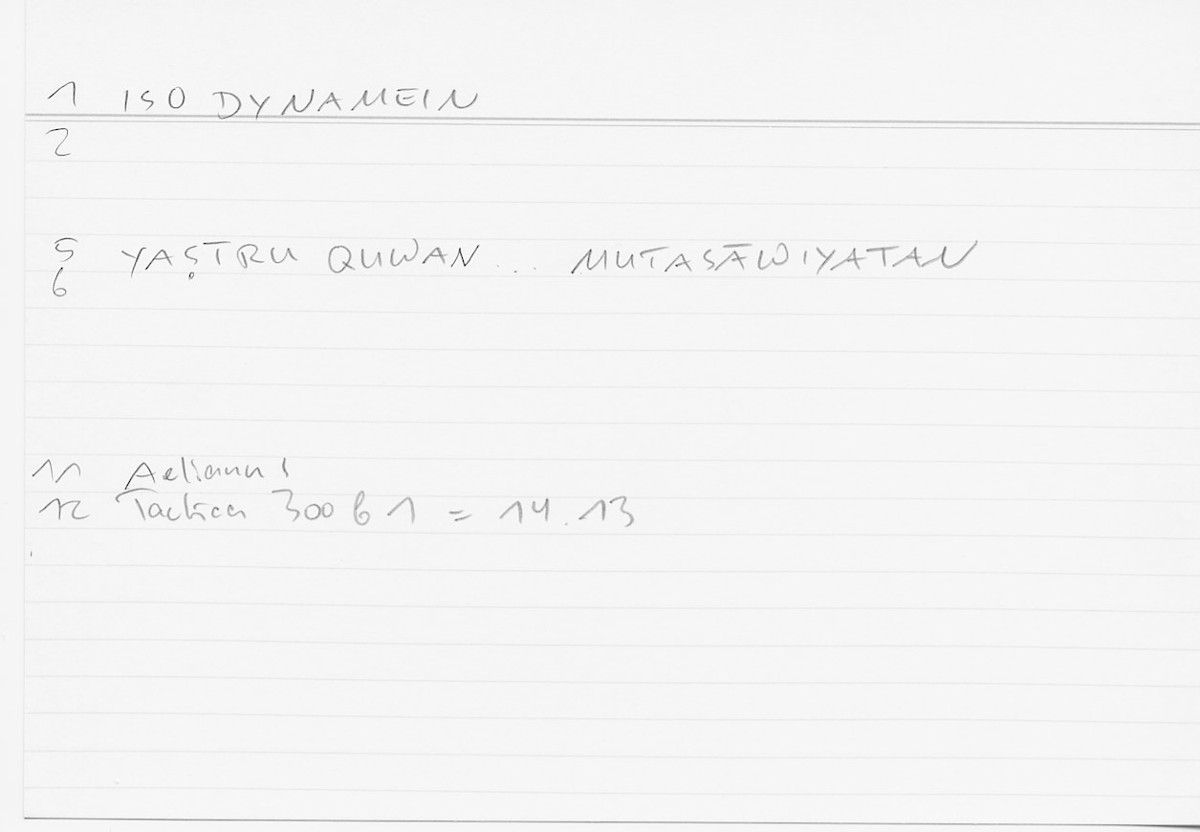 1 ISO DYNAMEIN
2
5 YAṢTRU QUWAN ... MUTASĀWIYATAN
6
11 Aelianus
12 Tactica 300 b 1 = 14.13